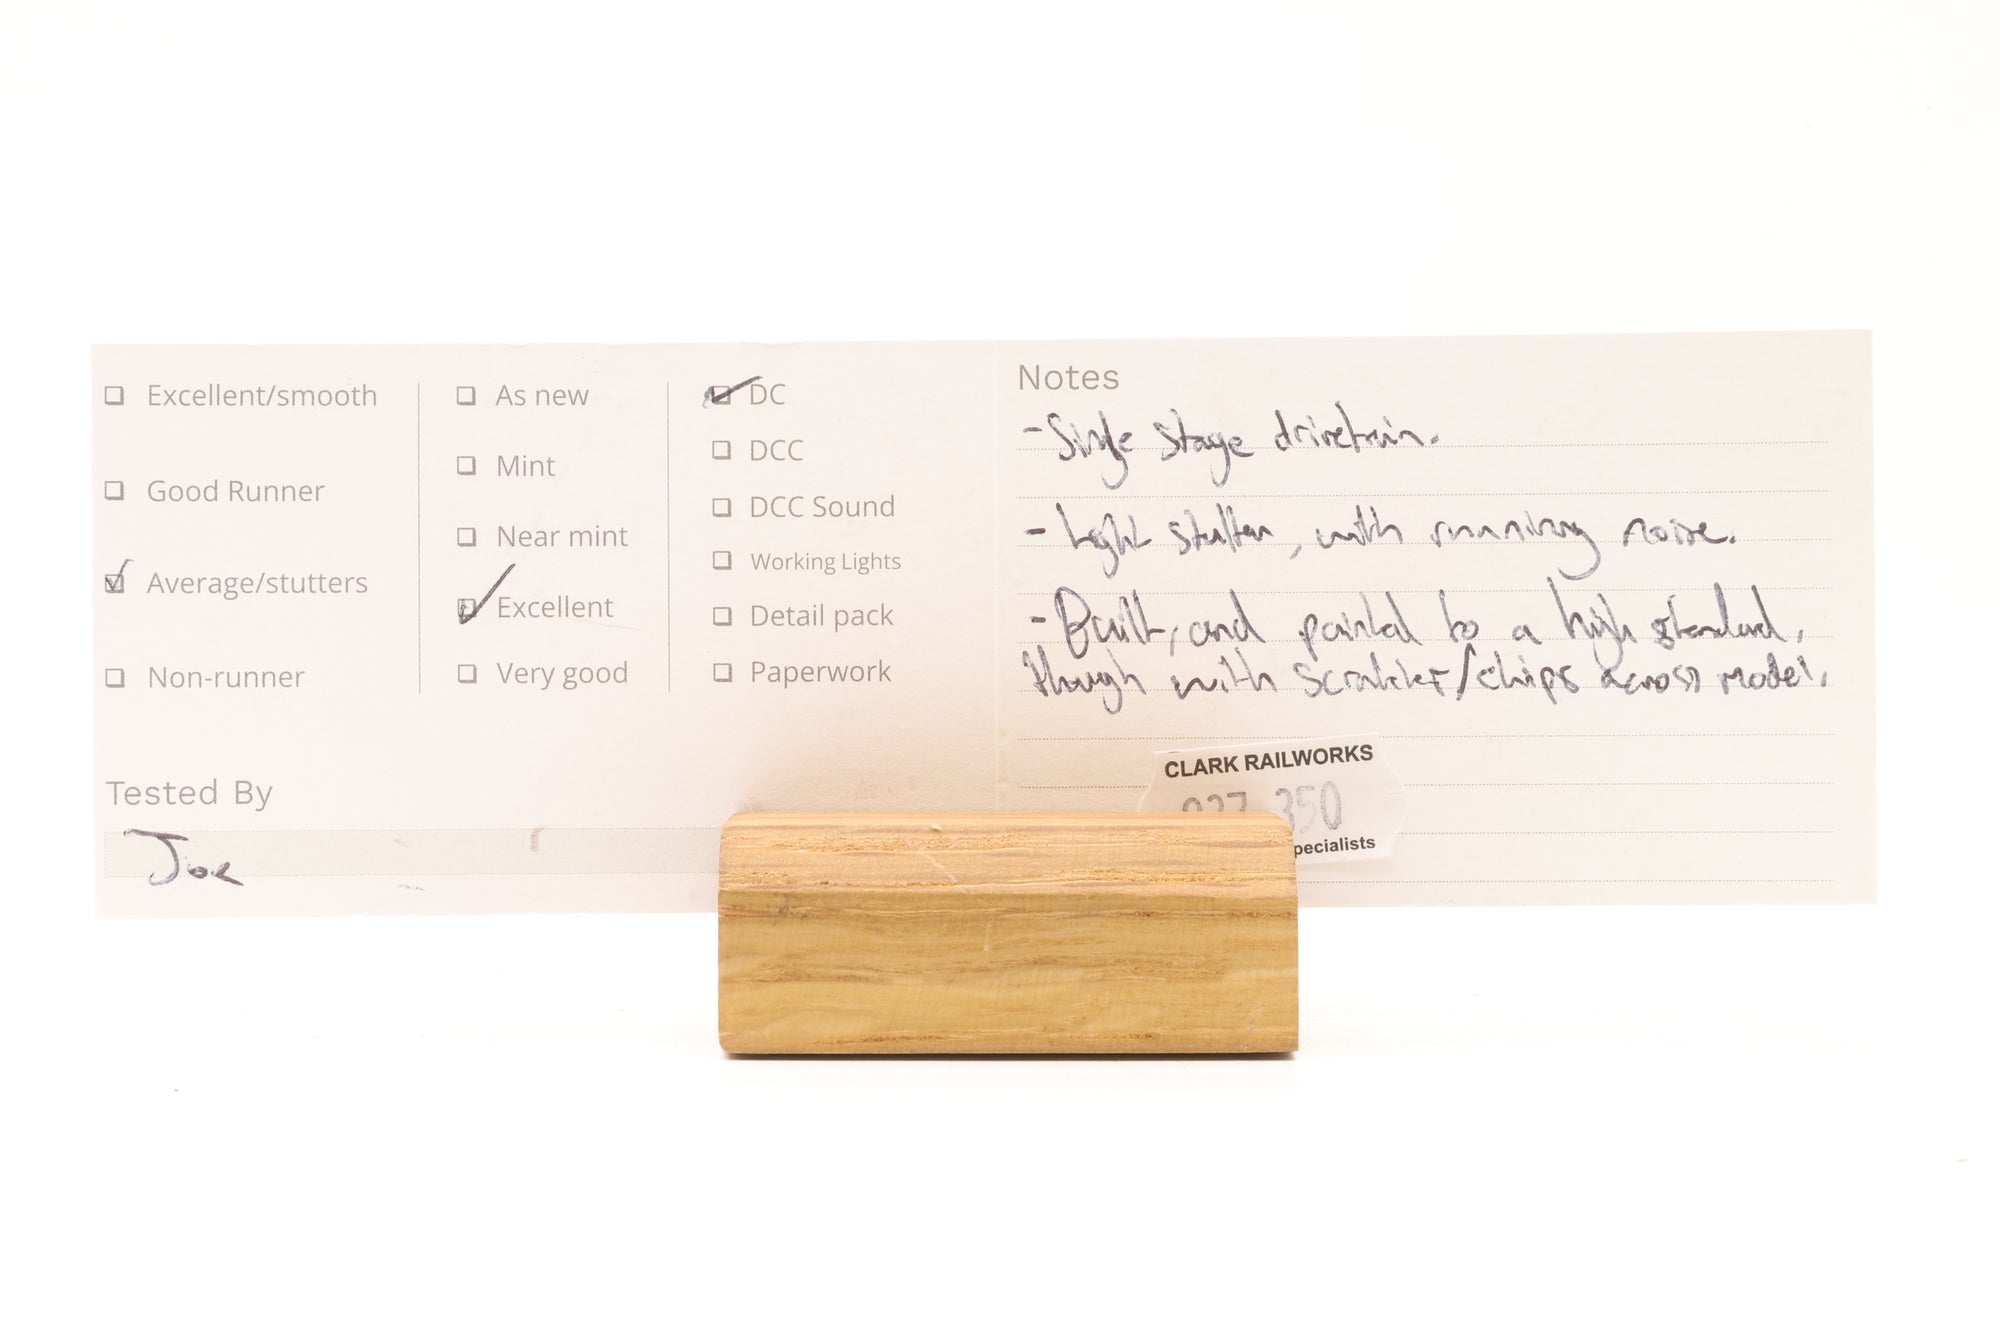 Excellent/smooth
Good Runner
Average/stutters
Non-runner
As new
Mint
Near mint
Excellent
Very good
DC
DCC
DCC Sound
Working Lights
Detail pack
Paperwork
Tested By
Joe
Notes
- Single stage drivetrain.
- Light stutter, with running noise.
- Built, and painted to a high standard,
though with scratches/chips across model.
CLARK RAILWORKS
350
pecialists